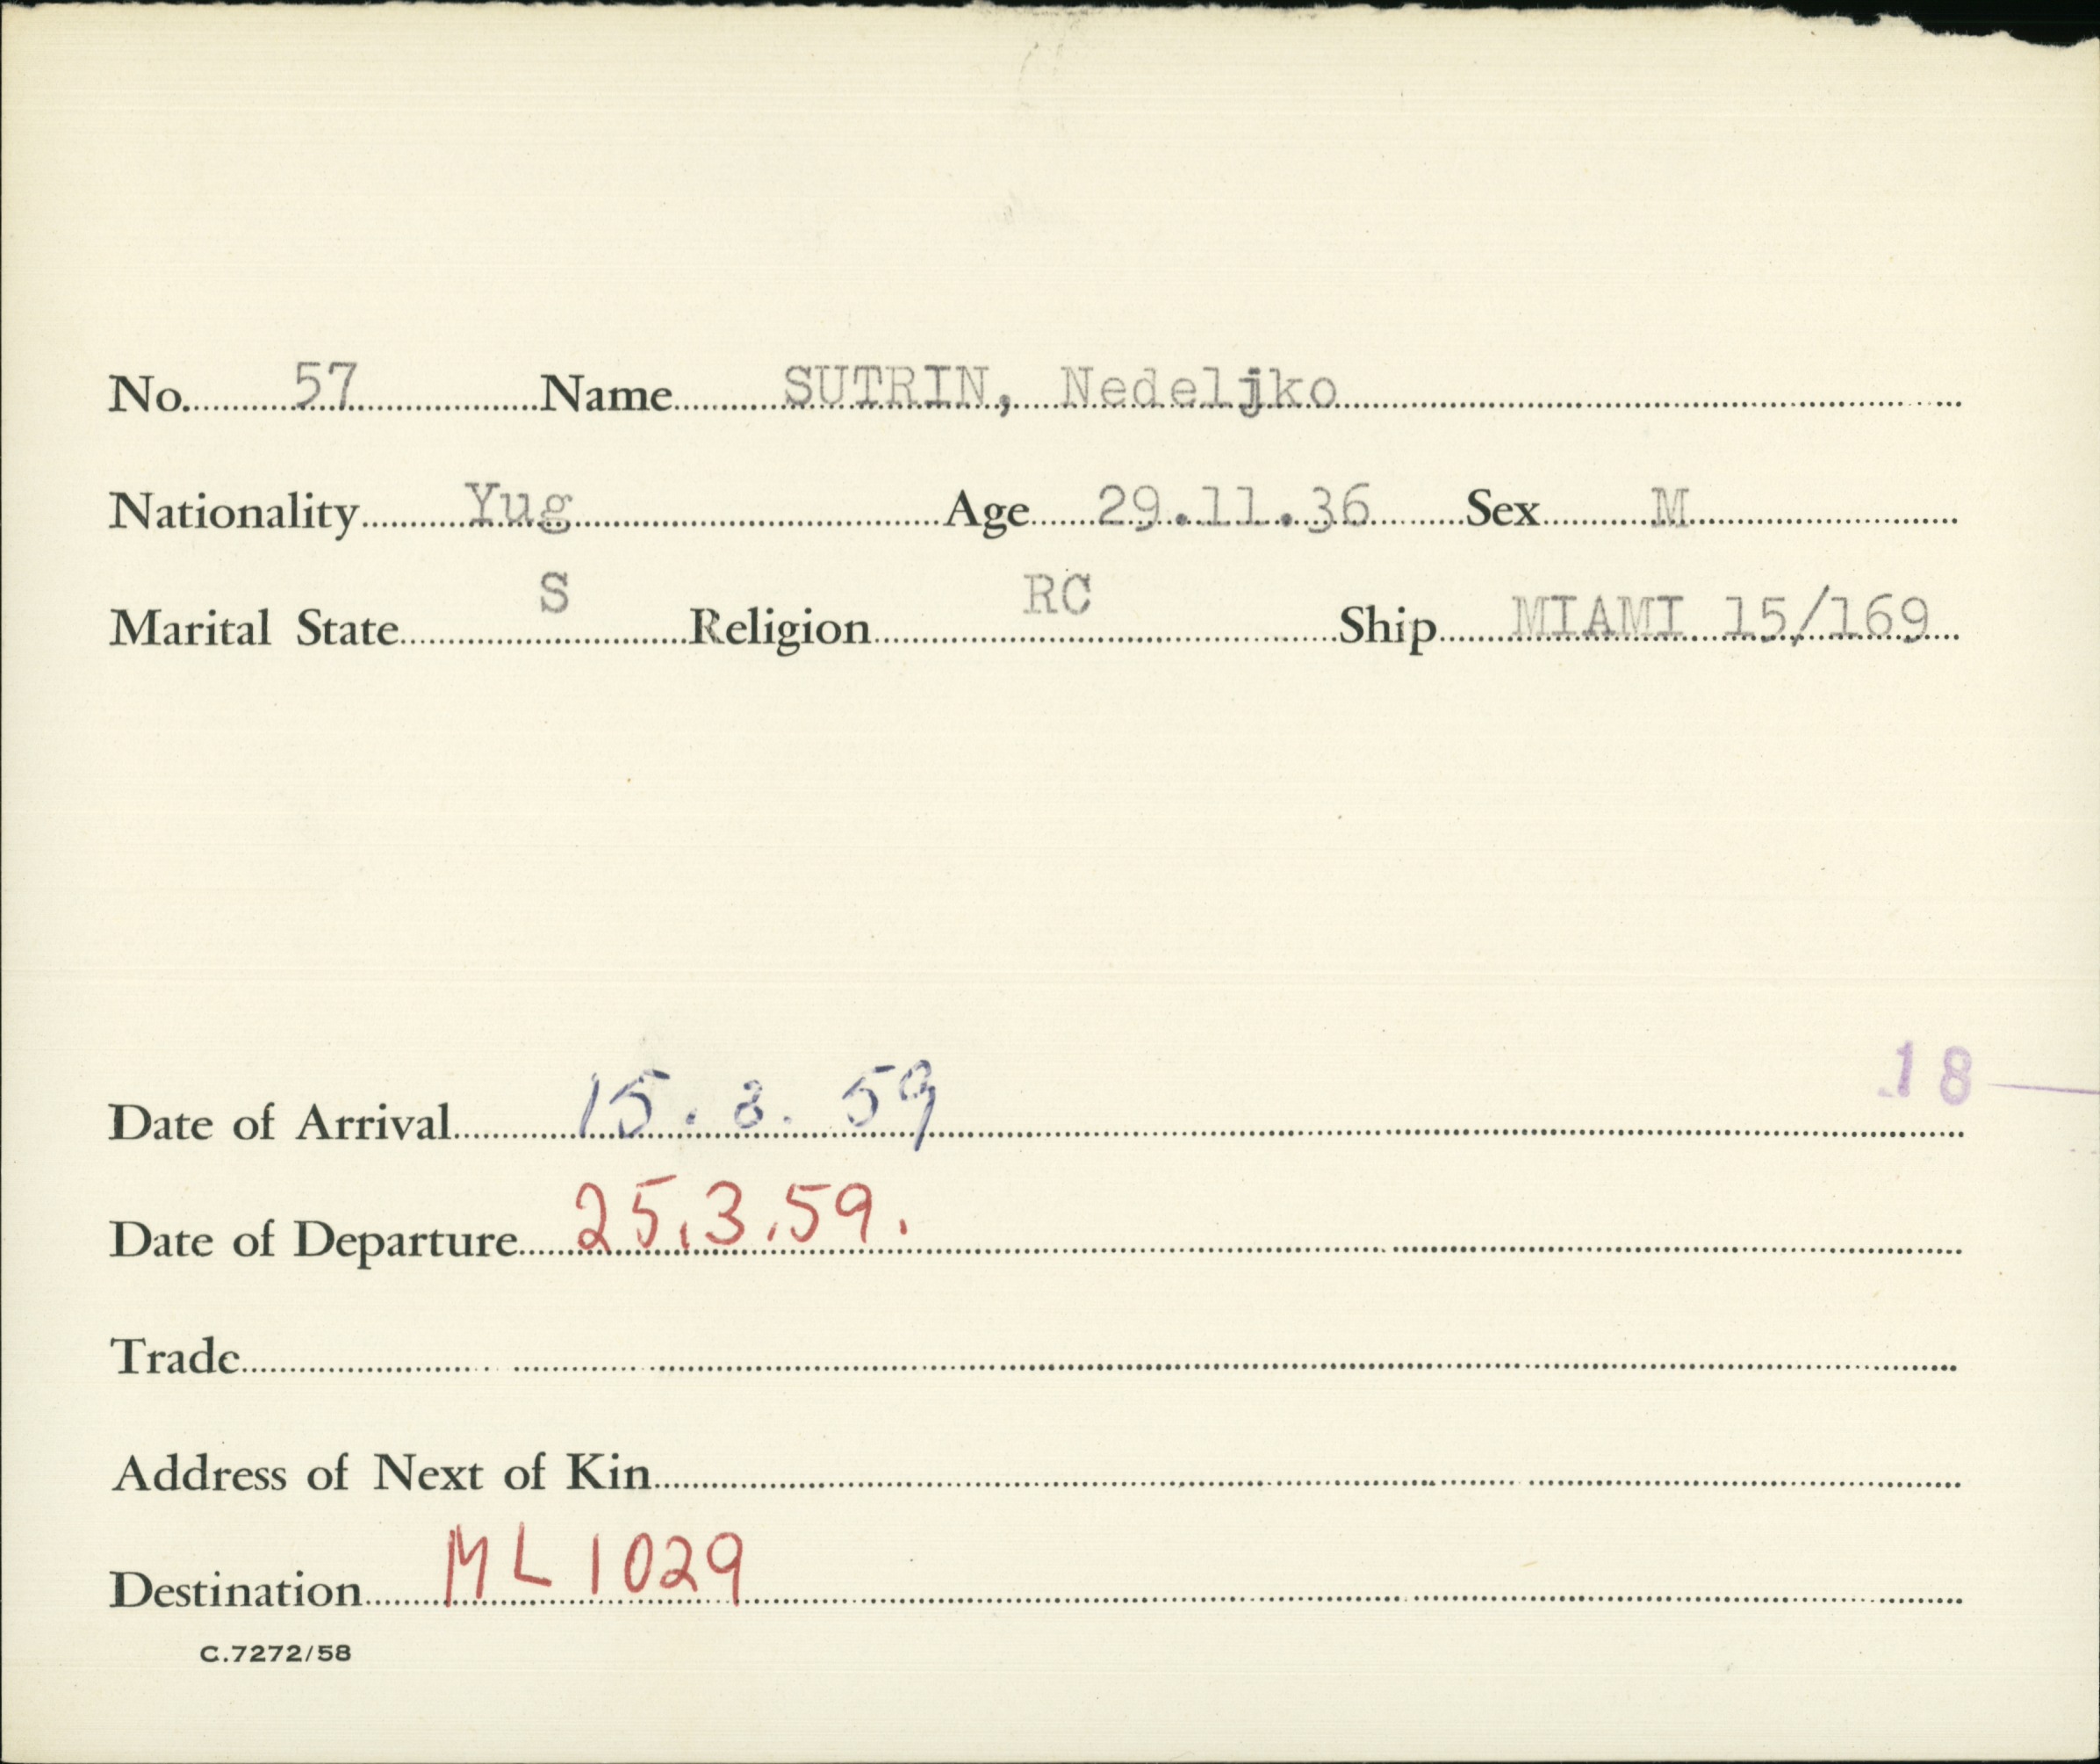 No. 57 Name SUTRIN, Nedeljko
Nationality Yug Age 29.11.36 Sex M
Marital State S Religion RC Ship MIAMI 15/169
18
Date of Arrival 15. 3. 59
Date of Departure 25.3.59.
Trade
Address of Next of Kin
Destination ML 1029
C.7272/58